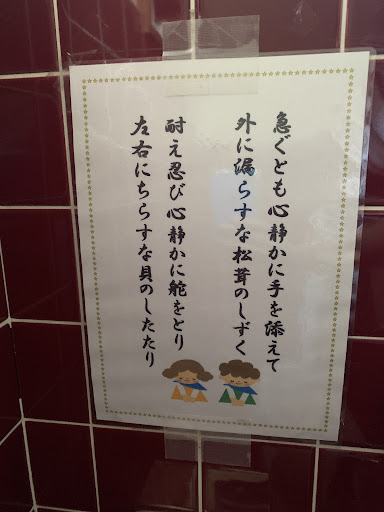 急ぐとも心静かに手を添えて
外に漏らすな松茸のしずく
耐え忍び心静かに舵をとり
左右にちらすな貝のしたたり